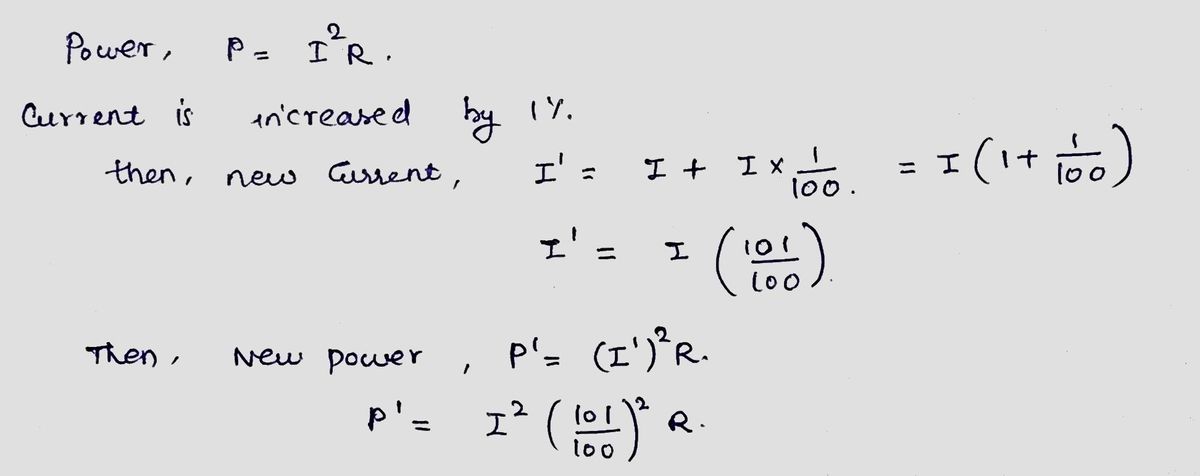 Power, P = I²R.
Current is increased by 1%.
then, new Current, I' = I + I × 1/100. = I(1 + 1/100)
I' = I (101/100).
Then, New power, P' = (I')²R.
P' = I² (101/100)² R.